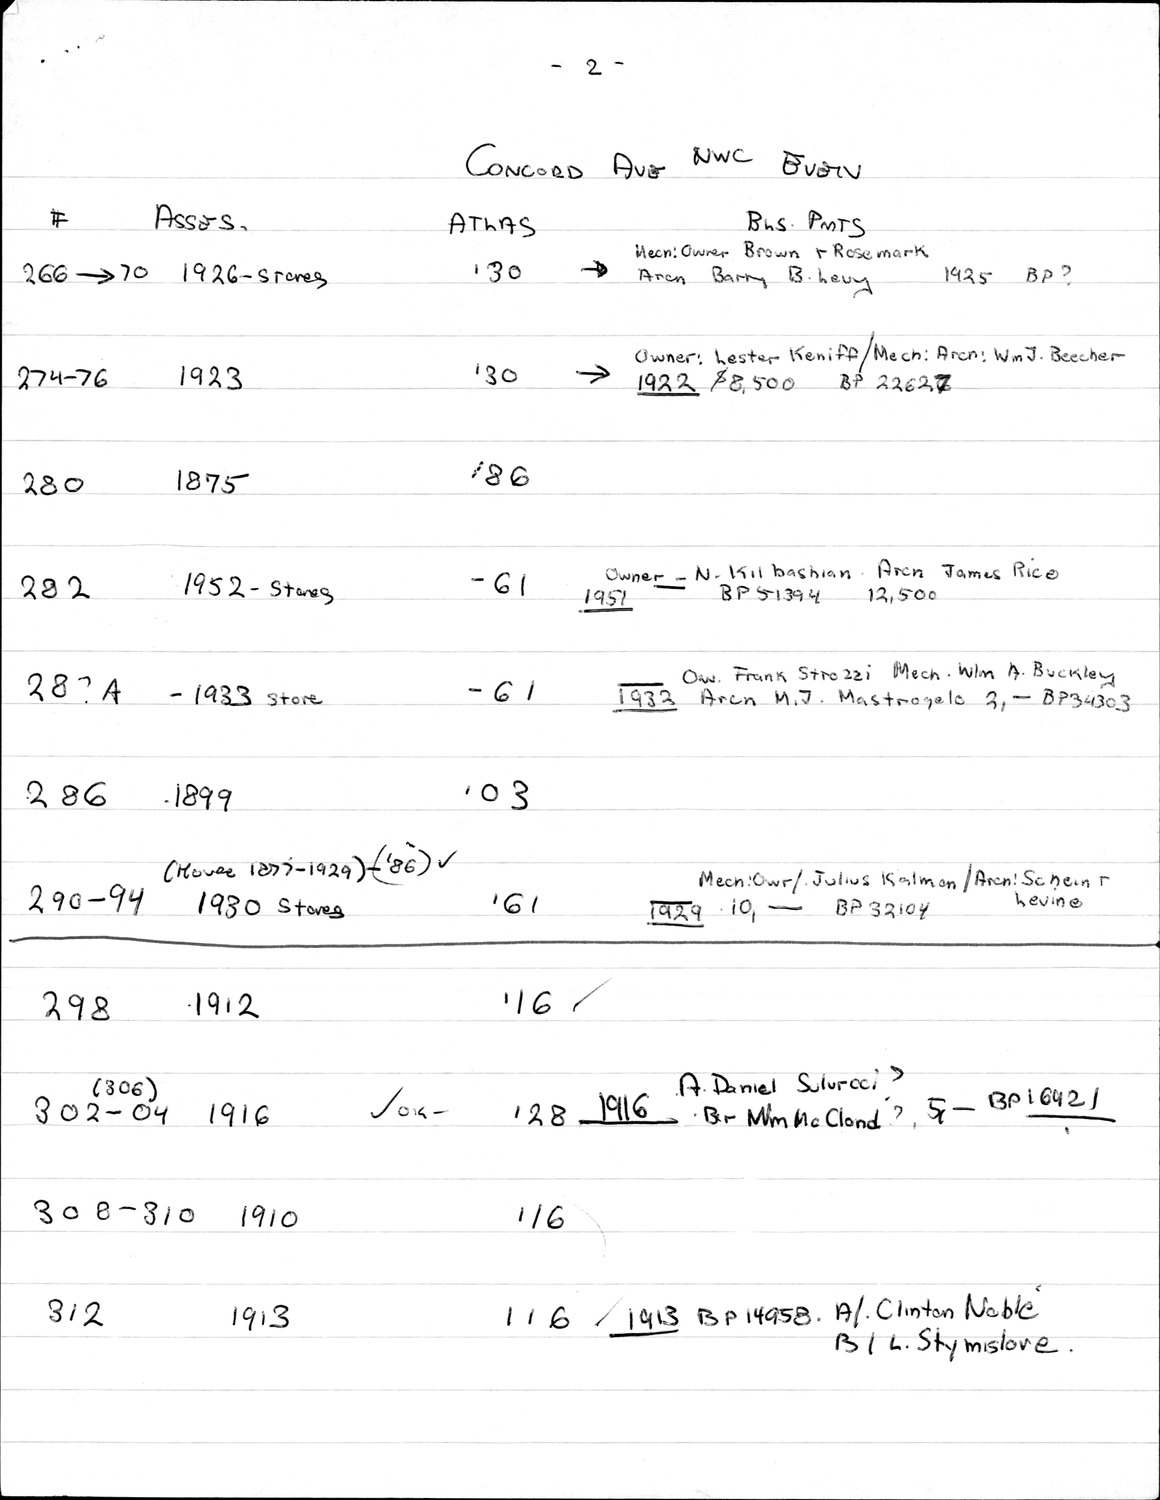 - 2 -
CONCORD AVE NWC EVEN
# ASSES. ATLAS BLS. PMTS
Mech: Owner Brown + Rosemark
266 → 70 1926 - Stores '30 → Arch Barry B. Levy 1925 BP?
Owner: Lester Keniff / Mech: Arch: Wm J. Beecher
274-76 1923 '30 → 1922 $8,500 BP 22627
280 1875 '86
Owner - N. Kilbashian Arch James Rice
282 1952 - Stores - 61 1951 BP 51394 12,500
Ow. Frank Strozzi Mech. Wlm A. Buckley
28? A - 1933 store - 61 1932 Arch M.J. Mastrogelo 2, - BP34303
286 1899 '03
(House 1877-1929) - ('86) ✓
Mech: Owr/. Julius Kalman / Arch: Schein +
290-94 1930 Stores '61 1929 10, - BP 32104 Levine
298 1912 '16 /
(306) A. Daniel ?
302-04 1916 ✓ OK - '28 1916 Br Wlm McClond ?, 5, - BP 16421
308-310 1910 '16
312 1913 '16 / 1913 BP 14958. A/. Clinton Noble
B / L. Stymislove.